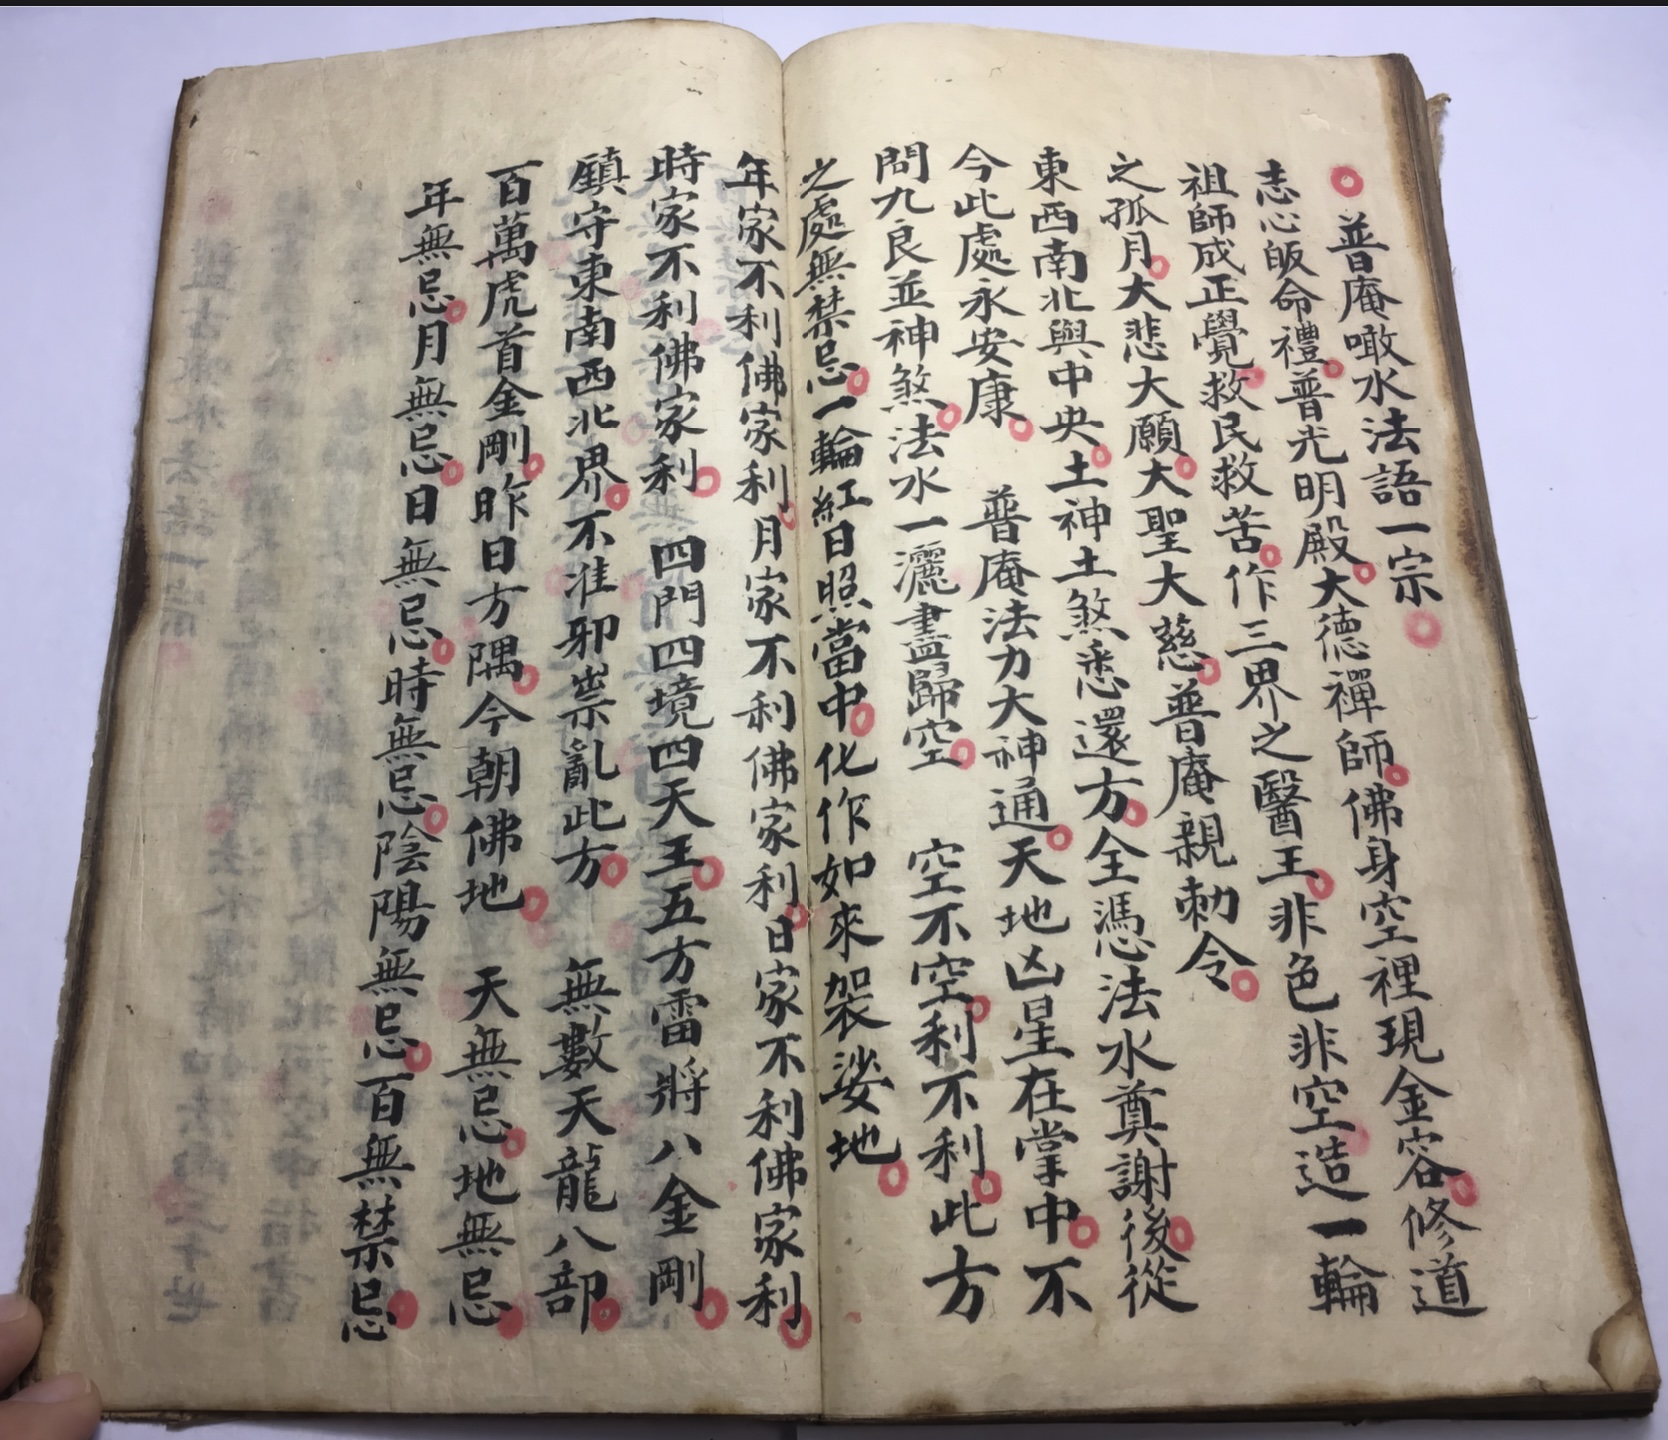 普庵噉水法語一宗
志心皈命禮普光明殿大德禪師佛身空裡現金容修道
祖師成正覺救民救苦作三界之醫王非色非空造一輪
之孤月大悲大願大聖大慈普庵親勅令
東西南北與中央土神土煞悉還方全憑法水奠謝後從
今此處永安康　普庵法力大神通天地凶星在掌中不
問九良並神煞法水一灑盡歸空　空不空利不利此方
之處無禁忌一輪紅日照當中化作如來袈娑地
年家不利佛家利月家不利佛家利日家不利佛家利
時家不利佛家利　四門四境四天王五方雷將八金剛
鎮守東南西北界不准邪祟亂此方　無數天龍八部
百萬虎首金剛昨日方隅今朝佛地　天無忌地無忌
年無忌月無忌日無忌時無忌陰陽無忌百無禁忌